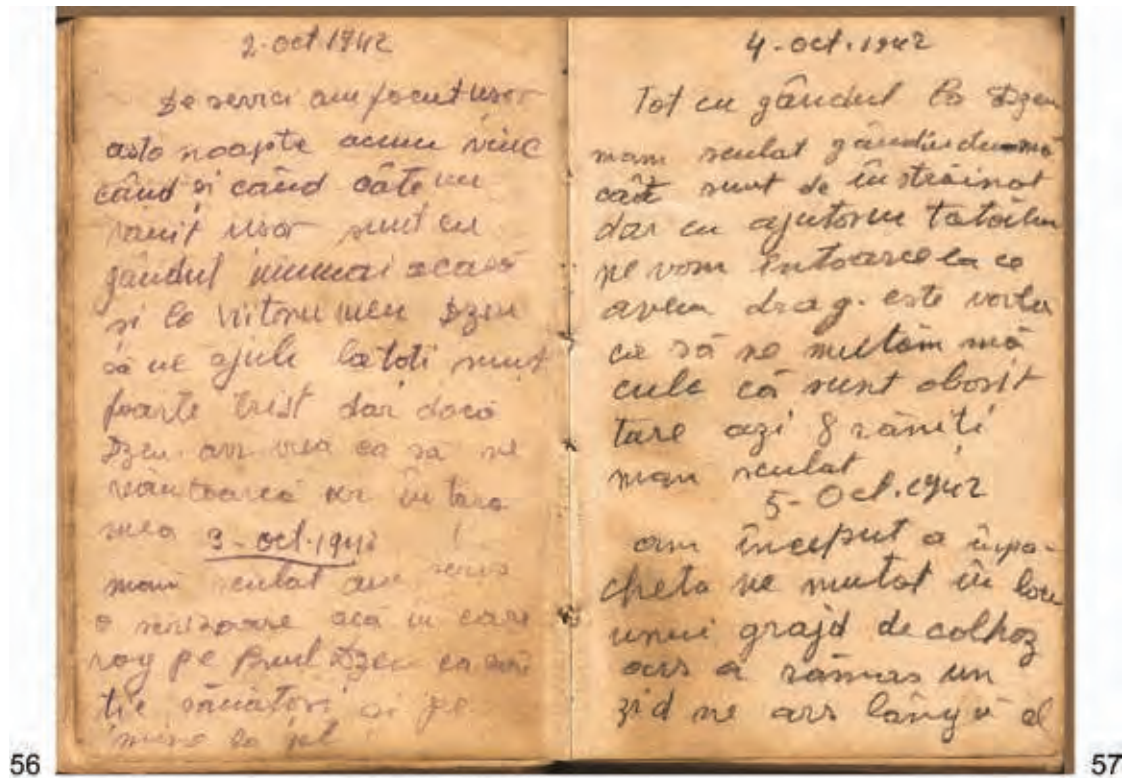 2-oct 1942
De servici am facut usor
asto noapte acum vine
când și când câte un
ranit usor sunt cu
gândul numai acasă
și la viitoru meu Dzeu
să ne ajute la toti sunt
foarte trist dar dacă
Dzeu arr vrea ca să ne
reântoarcă în tara
mea
3-oct.1942
mam sculat am scris
o scrizoare acă in care
rog pe Bunl Dzeu ca să
fie sănătosi și pe
mine la fel
56
4-oct.1942
Tot cu gândul la Dzeu
mam sculat gândindumă
cât sunt de înstrăinat
dar cu ajutoru tatăilui
ne vom întoarce la ce
avem drag. este vorba
ca să ne mutăm mă
culc că sunt obosit
tare azi 8 răniti
mam sculat
5-Oct.1942
am început a împa-
cheta ne mutat în locu
unui grajd de colhoz
ars a rămas un
zid ne ars lângă el
57